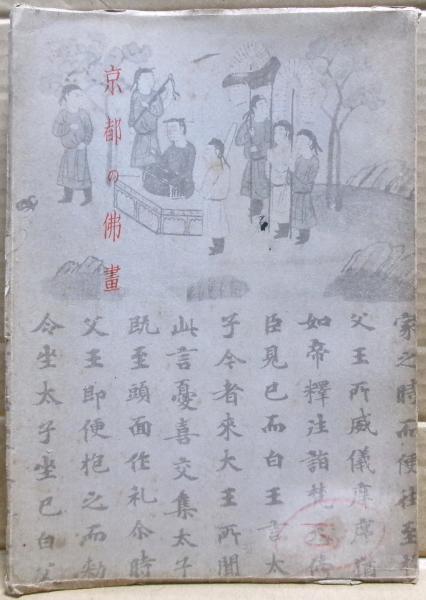 京都の佛畫
家之時而便往至
父王所威儀庠序猶
如帝釋往詣梵天
臣見已而白王言太
子今者來大王所聞
此言憂喜交集太子
既至頭面作礼尒時
父王即便抱之而勅
令坐太子坐已白父